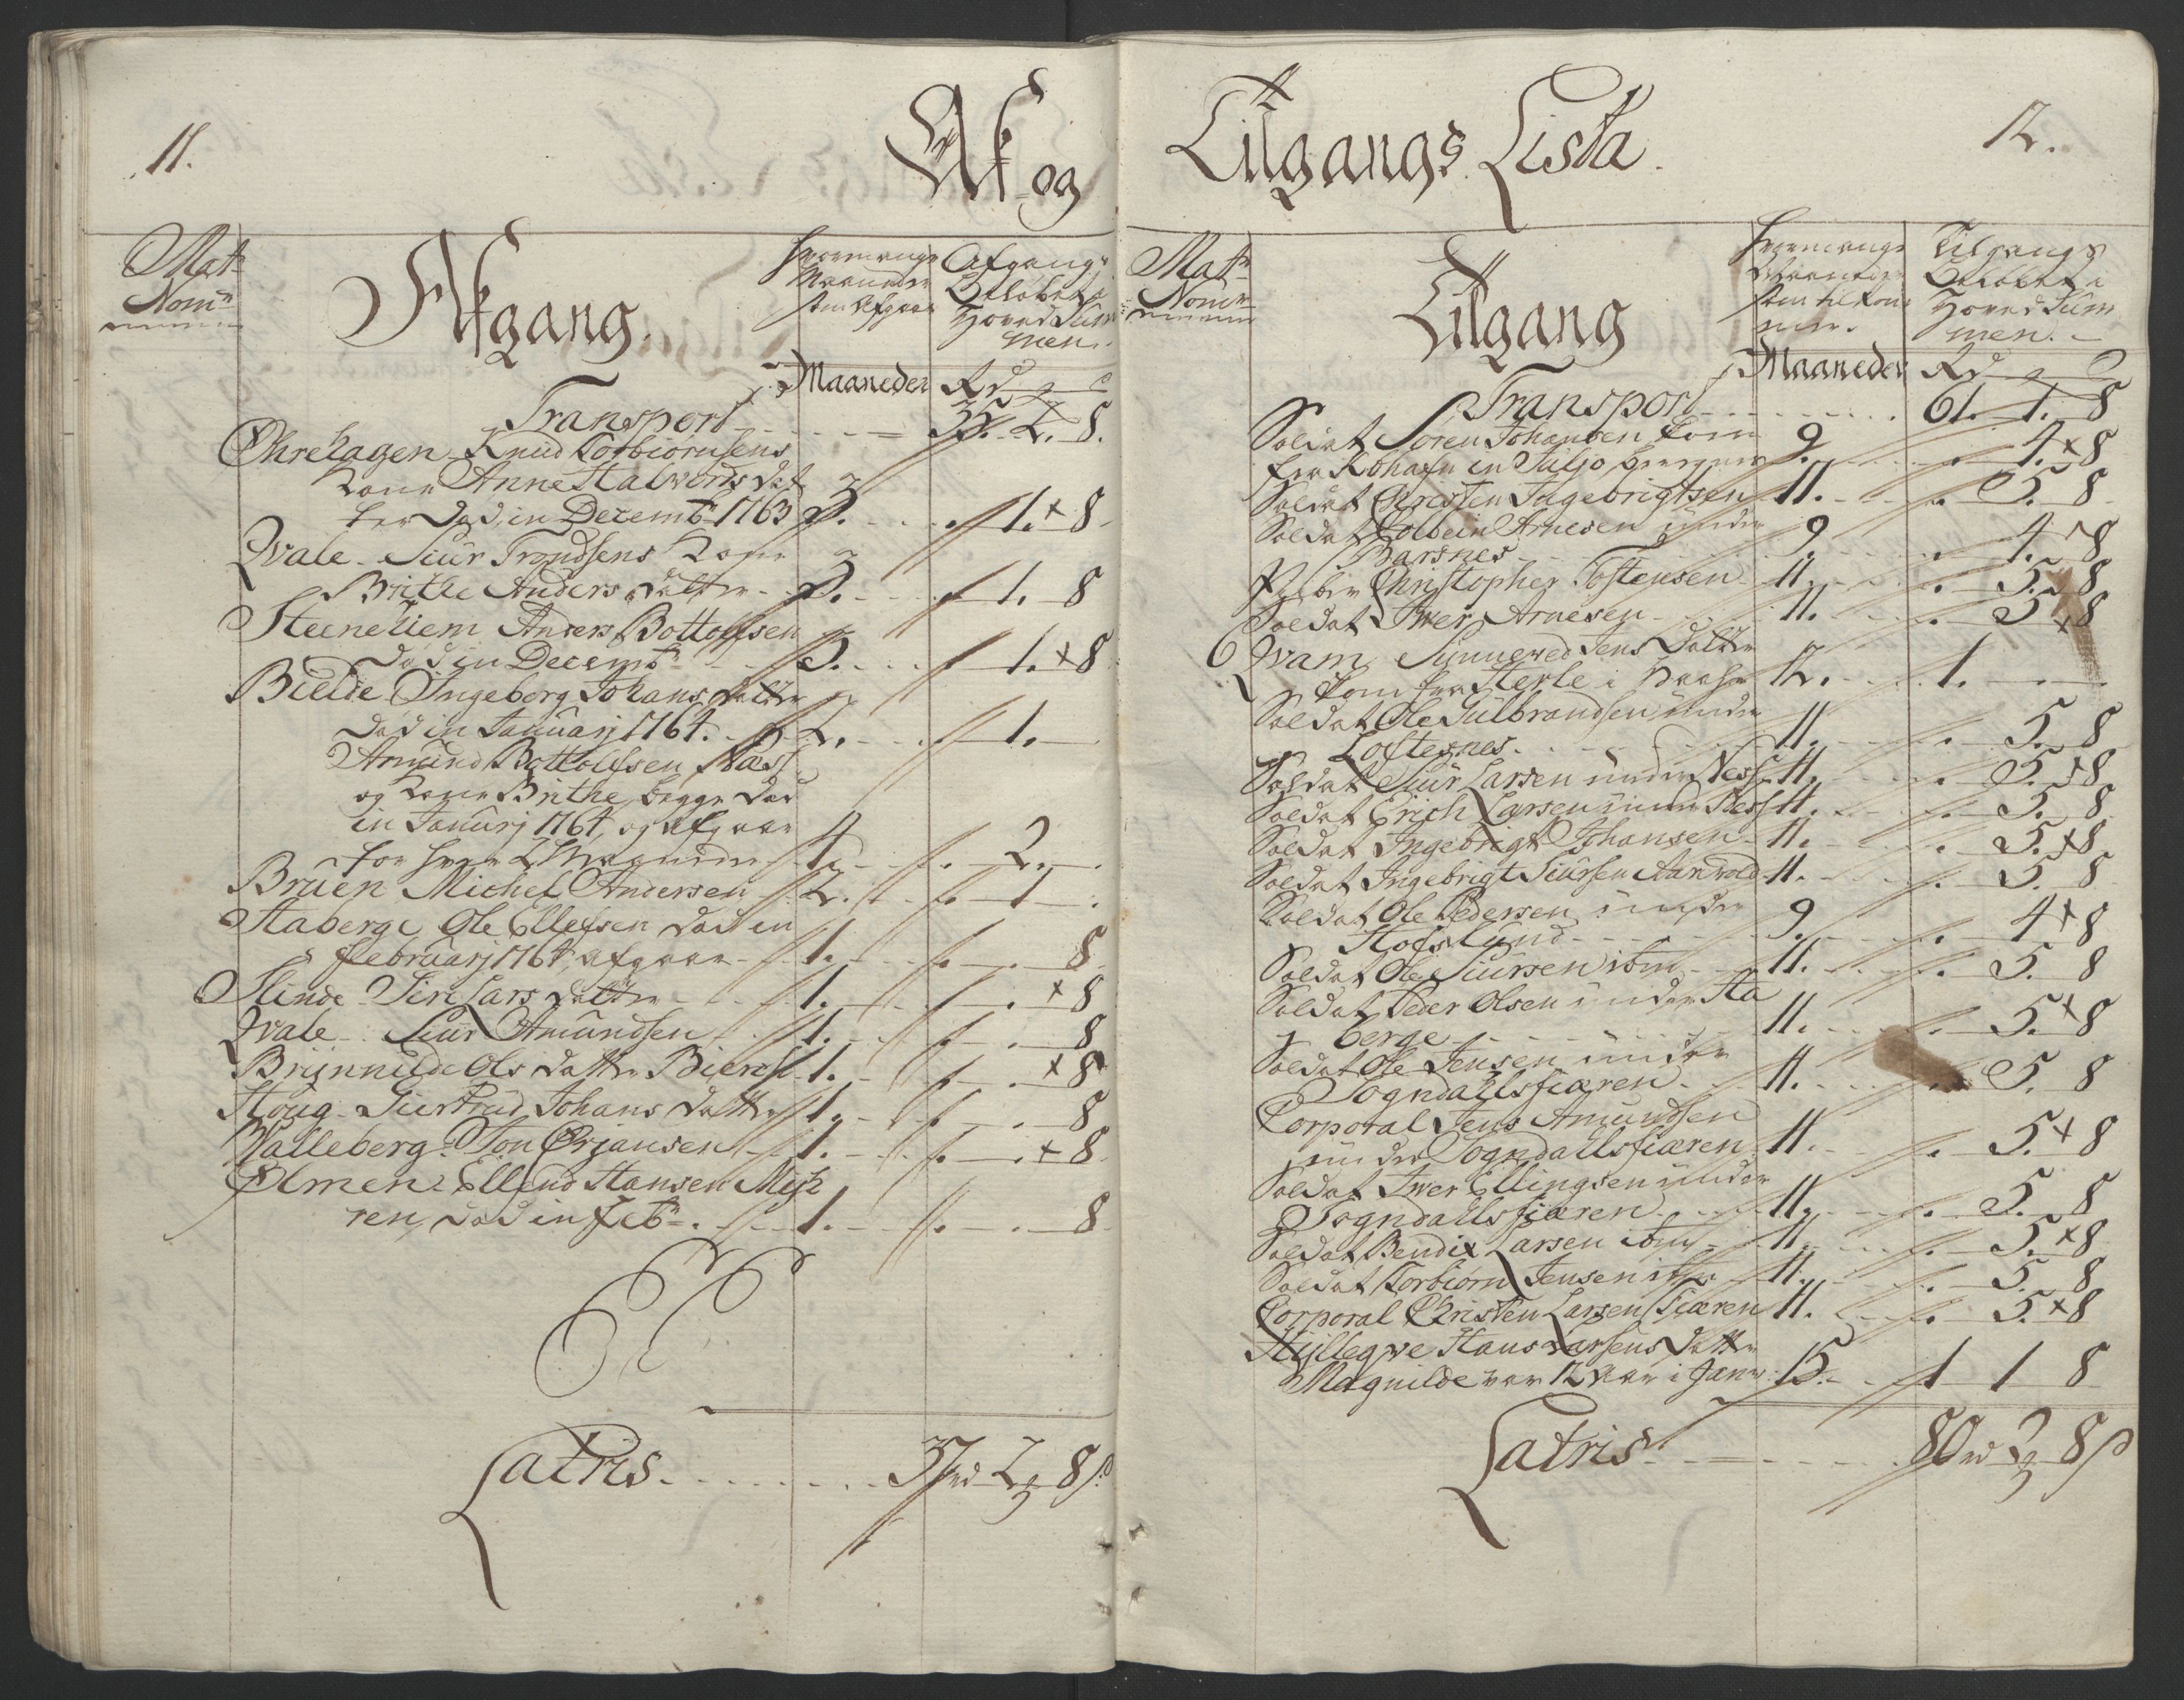 11.
Af og
Mat
Nom
Afgang.
hvormange
Maaneder
som Afgaar
Afgangs
Beløbet i
Hoved Sum
men.
Maaneder Rd
Transport 35. 2. 8.
Ohrehagen Knud Torbiørnsens
Kone Anne Halvordsdat
ter død in Decembr 1763 3. 1. 8
Qvale Siur Trondsens Kone
Brithe Andersdatter 3. 1. 8
Steenehiem Anders Bottolfsen
død in Decembr 3. 1. 8
Bielde Ingeborg Johansdatter
død in Januarj 1764. 2. 1.
Amund Bottolfsen Næss
og Kone Brithe, begge død
in Januarj 1764, og afgaar
for hver 2 Maaneder 4. 2.
Bruen Michel Andersen 2. 1
Staberge Ole Ellefsen død in
Februarj 1764, afgaar 1. 8
Slinde Siri Larsdatter 1. 8
Qvale Siur Amundsen 1. 8
Brynnilde Olsdatter 1. 8
Houg Giertrud Johansdatter 1. 8
Walleberg Jon Ørjansen 1. 8
Ølmen Ellend Hansen
død in Feb 1. 8
Latris 37 rd 2 8
Tilgangs Lista
12.
Mat
Nom
Tilgang
hvormange
Maaneder
som tilkom
mer.
Tilgangs
Beløbet i
Hoved Sum
men.
Maaneder Rd
Transport 61. 1. 8
Soldat Søren Johansen kom
fra Kbhafn in Juljo 9. 4. 8
Soldat Christen Ingebrigtsen 11. 5. 8
Soldat Colbein Arnesen under
Barsnes 9. 4. 8
Christopher Tostensen 11. 5. 8
Soldat Iwer Arnesen 11. 5. 8
6 Qvam Sunneved Jens Datter
kom fra Herle i 12. 1.
Soldat Ole Gulbrandsen under
Loftesnes. 11. 5. 8
Soldat Siur Larsen under Ness 11. 5. 8
Soldat Erich Larsen under Ness 11. 5. 8
Soldat Ingebrigt Johansen 11. 5. 8
Soldat Ingebrigt Siursen Aardvold 11. 5. 8
Soldat Ole Pedersen under
Hofslund 9. 4. 8
Soldat Ole Siursen ibm 11. 5. 8
Soldat Peder Olsen under Sta
berge 11. 5. 8
Soldat Ole Jensen under
Sogndallsfiæren 11. 5. 8
Corporal Jens Amundsen
under Sogndallsfiæren 11. 5. 8
Soldat Iwer Ellingsen under
Sogndallsfiæren 11. 5. 8
Soldat Bendix Larsen ibm 11. 5. 8
Soldat Torbiørn Jensen ibm 11. 5. 8
Corporal Christen Larsen Fiæren 11. 5. 8
Hans Larsens datter
Magnilde var 12 Aar i Janr 15. 1 1 8
Latris 80 rd 3 8